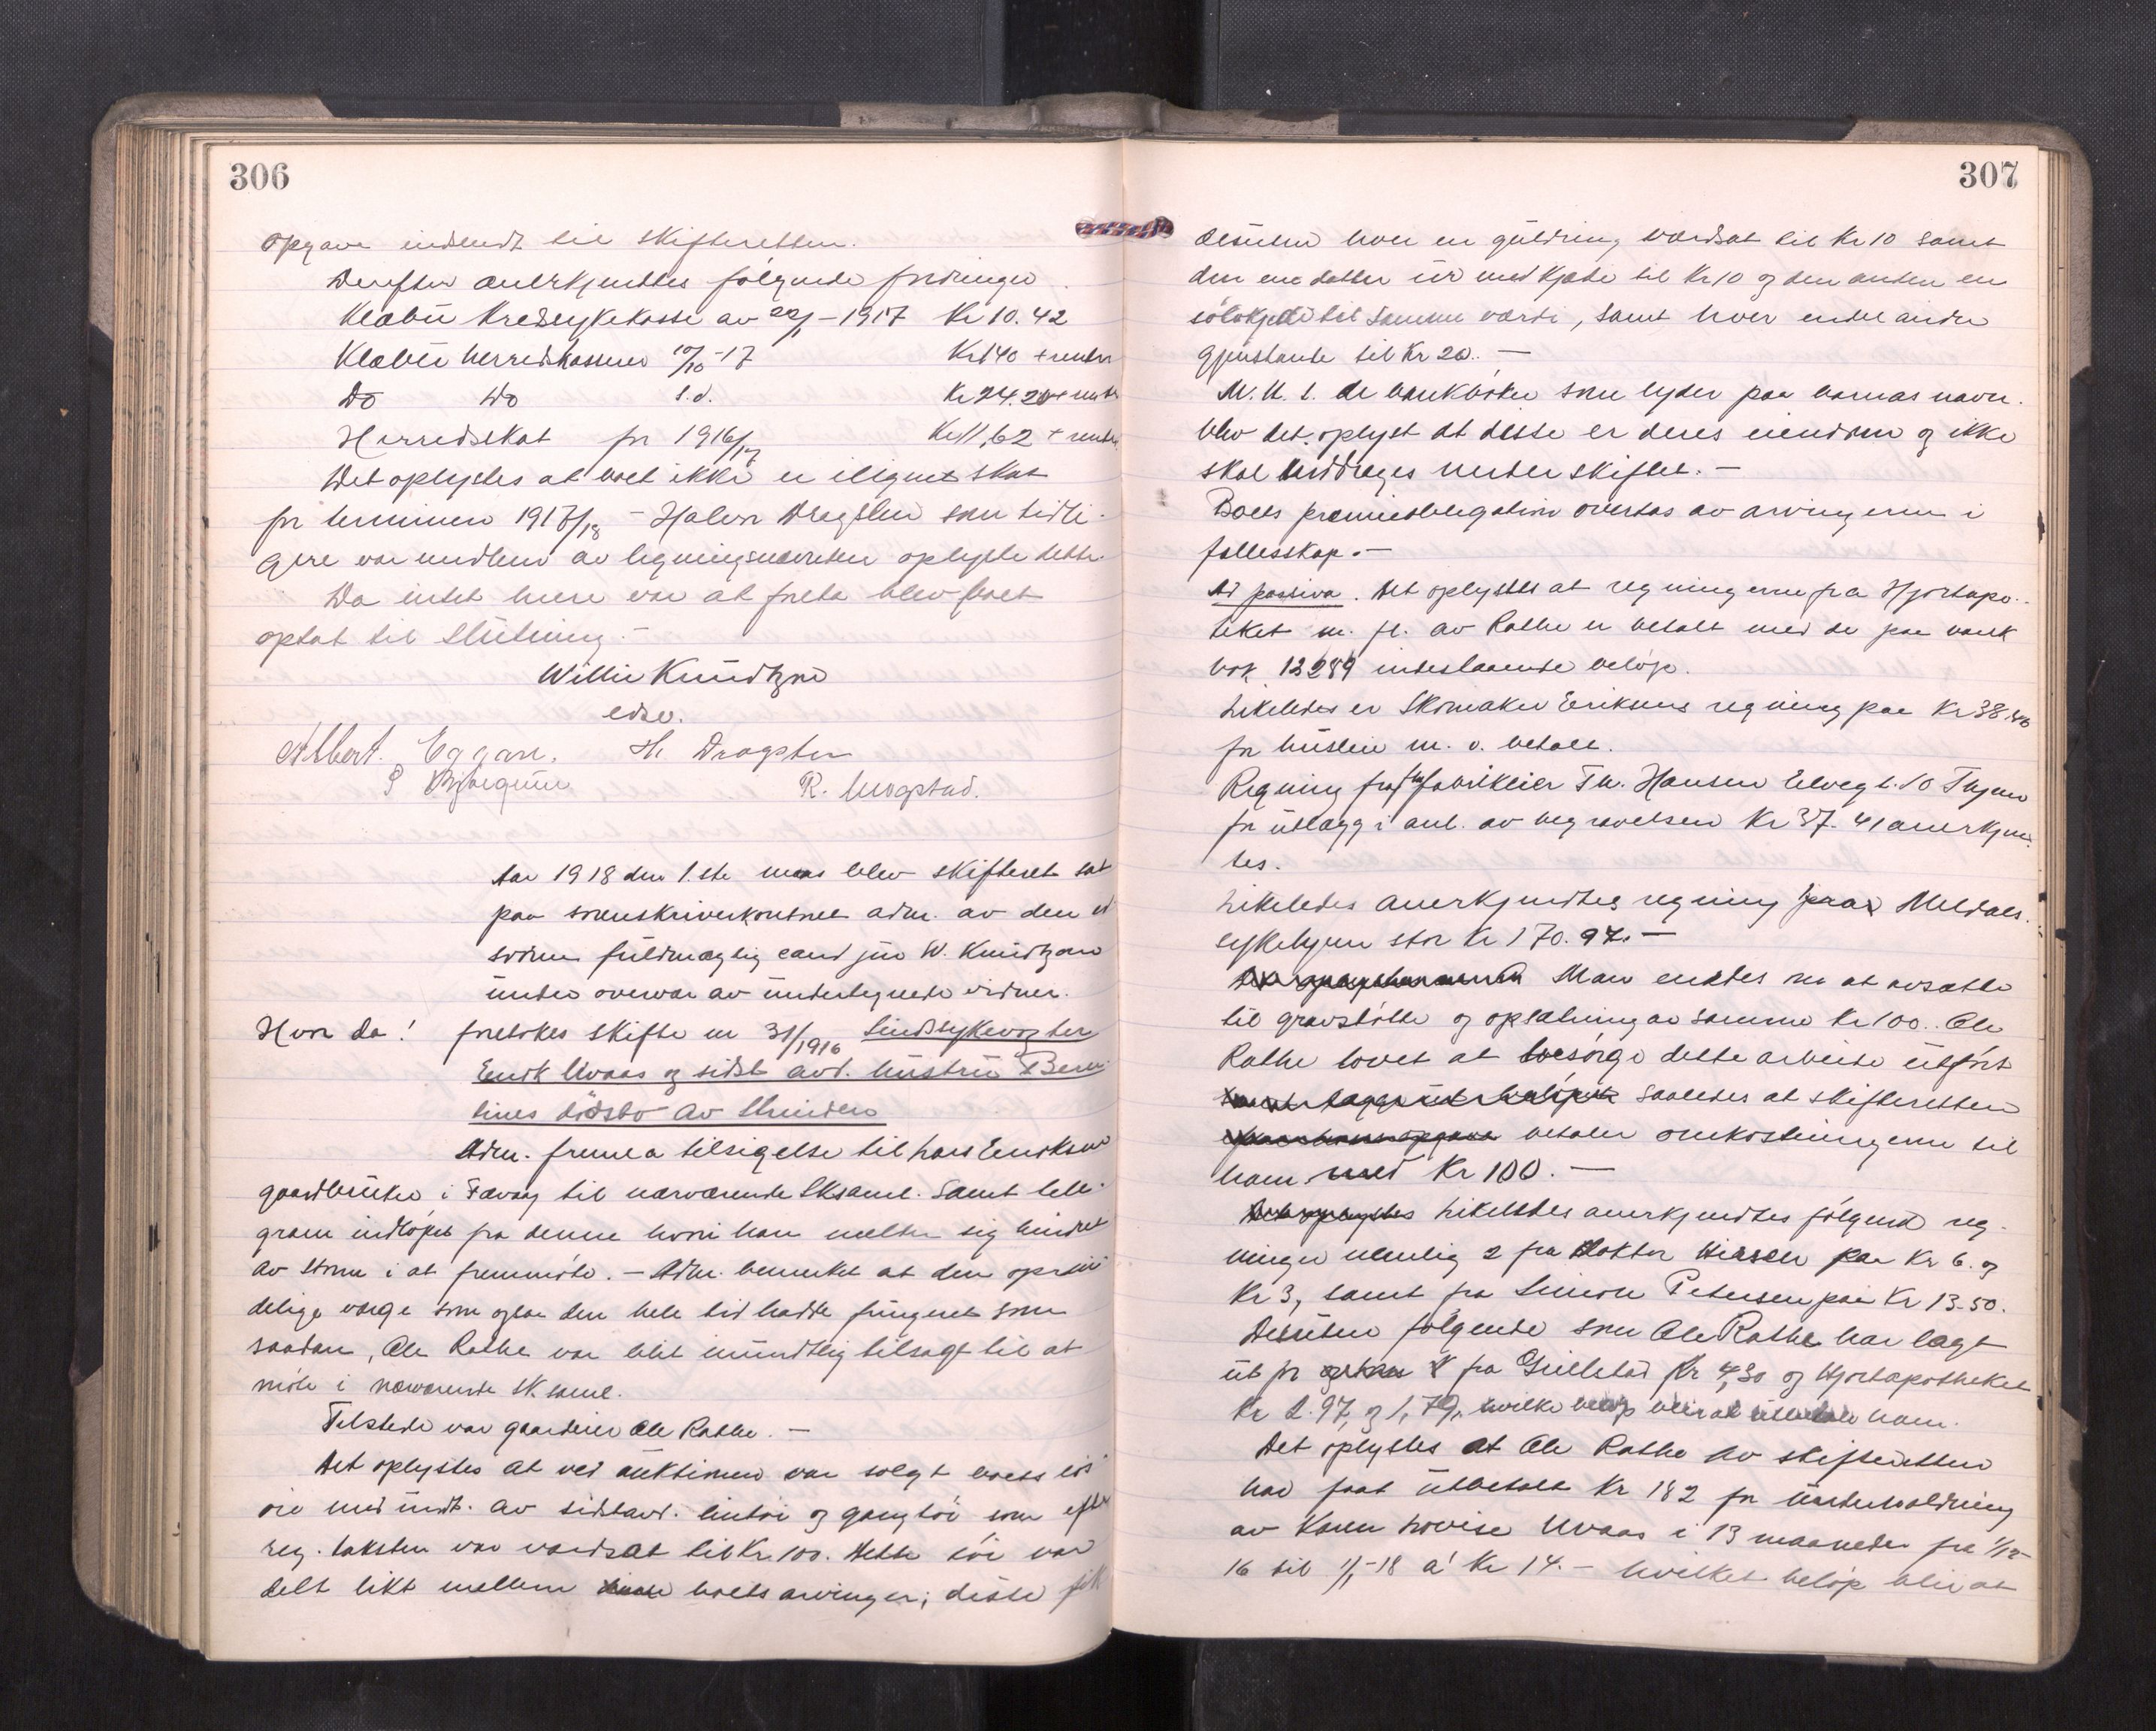 306
opgave indsendt til skifteretten.
Derefter anerkjendtes følgende fordringer
Klæbu Kredssykekasse av 22/1 - 1917 Kr 10.42
Klæbu herredskasserer 10/10 - 17 Kr 140 + renter
Do Do s.d. Kr 24.20 + renter
Herredskat for 1916/17 Kr 11,62 + renter
Det oplystes at boet ikke er ilignet skat
for terminen 1917/18 - Halvor Dragsten som tidli-
gere var medlem av ligningsnævnden oplyste dette.
Da intet mere var at foreta blev boet
optat til slutning. -
Willie Knudtzon
edsv.
Albert Eggan. H. Dragsten
P Bjørgum R. Mogstad.
Aar 1918 den 1.ste mars blev skifteret sat
paa sorenskriverkontoret adm. av den ed
svorne fuldmægtig cand jur W. Knudtzon
under overvær av undertegnede vidner.
Hvor da! foretokes skifte nr 31/1916 Sindssykevogter
Enok Uvaas og sidst avd. hustru Bern
tines dødsbo av Strinden
Adm. fremla tilsigelse til Lars Enoksen
gaardbruker i Favaag til nærværende Sksaml. Samt tele-
gram indløpet fra denne hvori han melder sig hindret
av storm i at fremmøte. - Adm. bemerket at den oprin-
delige værge som ogsaa den hele tid hadde fungeret som
saadan, Ole Rathe var blit mundtlig tilsagt til at
møte i nærværende sk.saml.
Tilstede var gaardeier Ole Rathe. -
Det oplystes at ved auktionen var solgt boets løs
øre med undt. av sidstavd. lintøi og gangtøi som efter
reg. taksten var værdsat til Kr. 100. Dette tøi var
delt likt mellem boets arvinger; disse fik
307
desuten hver en guldring værdsat til Kr 10 samt
den ene datter ur med kjede til Kr 10 og den anden en
sølvkjede til samme værdi, samt hver endel andre
gjenstande til Kr 20. -
M. H. t. de bankbøker som lyder paa barnas navn.
blev det oplyst at disse er deres eiendom og ikke
skal inddrages under skiftet. -
Boets præmieobligation overtas av arvingerne i
fællesskap. -
Ad passiva. Det oplystes at regningerne fra Hjortapo-
teket m. fl. av Rathe er betalt med de paa bank
bok 12289 indestaaende beløp.
Likeledes er Skomaker Eriksens regning paa Kr 38,46
for husleie m. v. betalt.
Regning fra fabrikeier Th. Hansen Elvegt. 10 Thjem
for utlægg i anl. av begravelsen Kr 37. 41 anerkjend
tes.
Likeledes anerkjendtes regning fra Meldals.
sykehjem stor Kr 170. 97. -
Man enedes om at avsætte
til gravstøtte og opsætning av samme Kr 100. Ole
Rathe lovet at besørge dette arbeide utført
saaledes at skifteretten
betaler omkostningerne til
ham med Kr 100. -
Likeledes anerkjendtes følgende reg-
ninger nemlig 2 fra Doktor paa Kr 6. og
Kr 3, samt fra Simon Petersen paa Kr 13.50.
Desuten følgende som Ole Rathe har lagt
ut for fra Gullstad Kr 4,30 og Hjortapotheket
Kr 2.97, og 1,79, hvilke beløp blir at utbetale ham.
Det oplystes at Ole Rathe av skifteretten
har faat utbetalt Kr 182 for underholdning
av Karen Lovise Uvaas i 13 maaneder fra 1/12 -
16 til 1/1 - 18 a' Kr 14. - hvilket beløp blir at